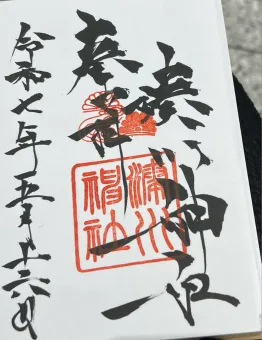 湊川神社
奉拝
令和七年五月十六日
湊川
神社